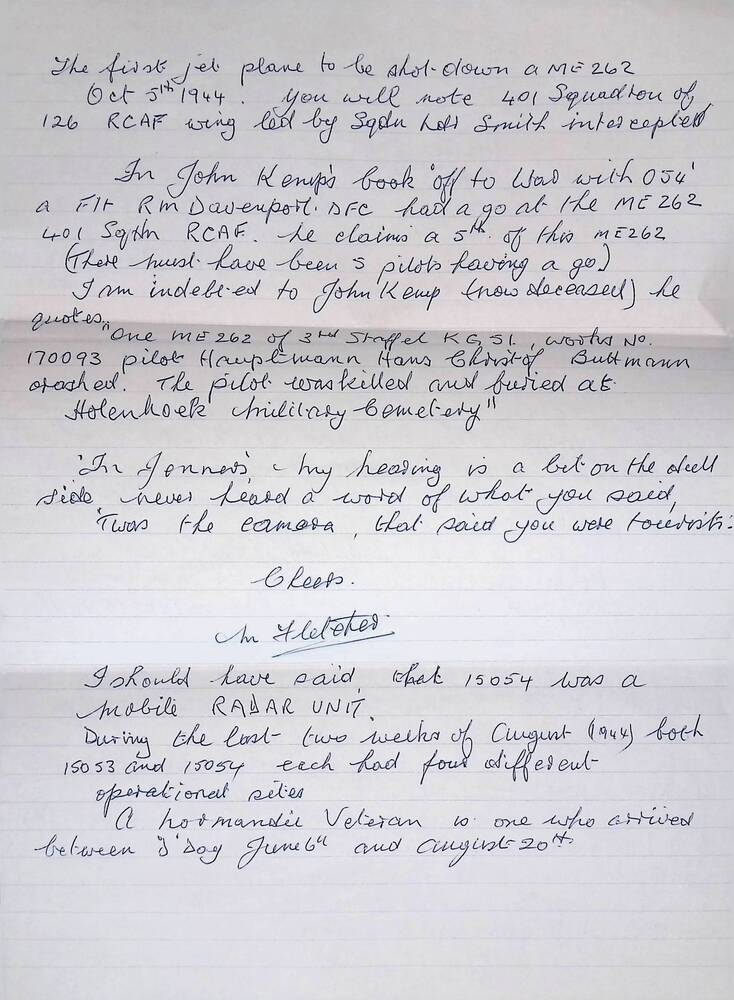 The first jet plane to be shot down a ME 262
Oct 5th 1944. You will note 401 Squadron of
126 RCAF wing led by Sqdn Ldr Smith intercepted
In John Kemp's book 'Off to War with 054'
a Flt RM Davenport. DFC had a go at the ME 262
401 Sqdn RCAF. he claims a 5th of this ME262
(There must have been 5 pilots having a go)
I am indebted to John Kemp (now deceased) he
quotes,
"One ME 262 of 3rd Staffel KG51, works No.
170093 pilot Hauptmann Hans Christof Buttmann
crashed. The pilot was killed and buried at
Holenhoek Military Cemetery"
'In Jenners', my hearing is a bit on the dull
side, never heard a word of what you said,
'Twas the camera, that said you were tourists.
Cheers.
M Fletcher.
I should have said, that 15054 was a
mobile RADAR UNIT.
During the last two weeks of August (1944) both
15053 and 15054 each had four different
operational sites
A Normandie Veteran is one who arrived
between 'D' Day June 6th and August 20th